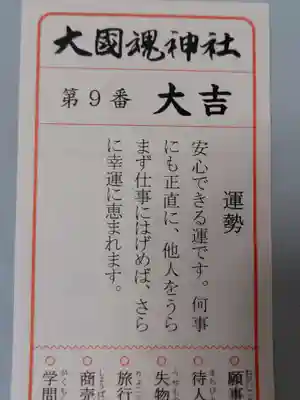 大國魂神社
第９番 大吉
運勢
安心できる運です。何事
にも正直に、他人をうら
まず仕事にはげめば、さら
に幸運に恵まれます。
○願事
○待人
○失物
○旅行
○商売
○学問